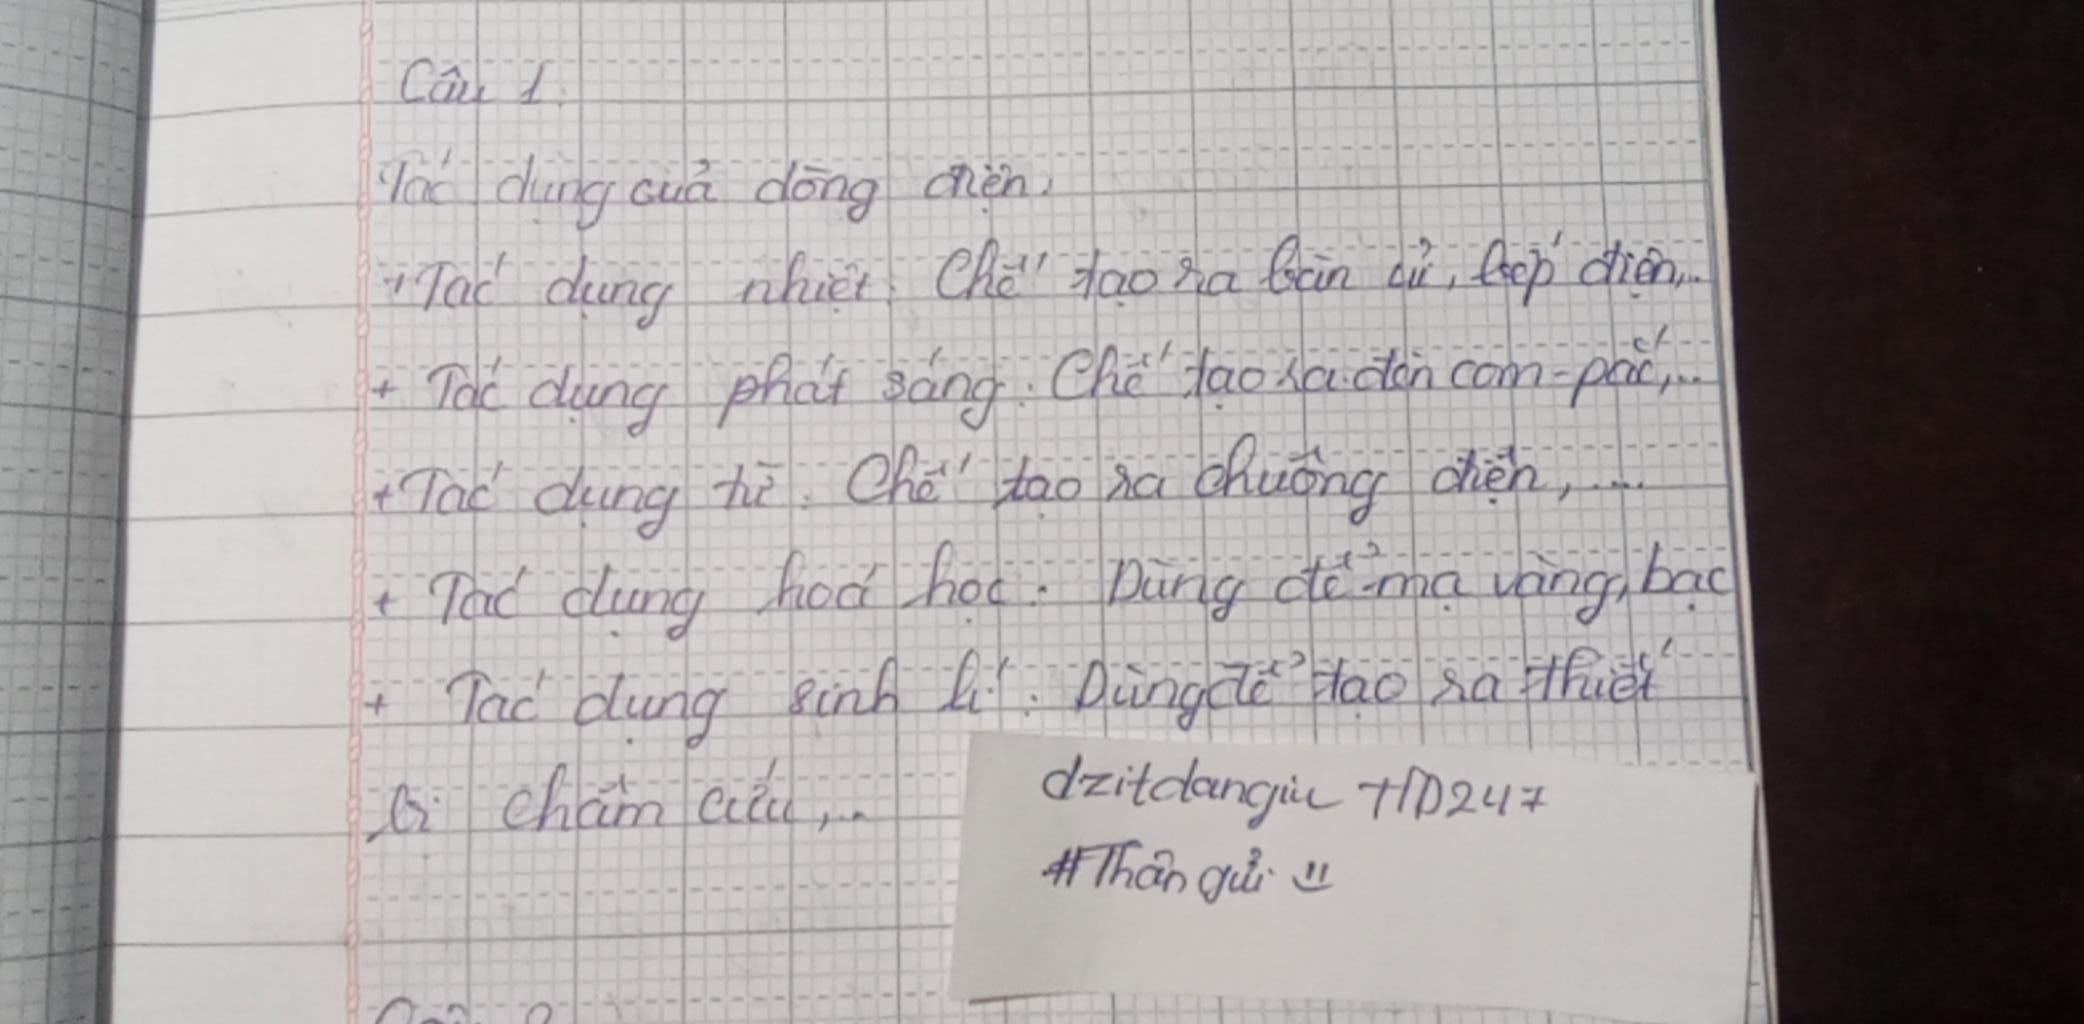 Câu 1.
Tác dụng của dòng điện.
+ Tác dụng nhiệt. Chế tạo ra bàn ủi, bếp điện,...
+ Tác dụng phát sáng. Chế tạo ra đèn com-pắc,...
+ Tác dụng từ. Chế tạo ra chuông điện, ....
+ Tác dụng hoá học. Dùng để mạ vàng, bạc
+ Tác dụng sinh lí. Dùng để tạo ra thiết
bị châm cứu,...
dzitdangiu HD247
#Thân gửi